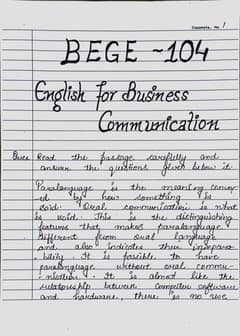 BEGE - 104
English for Business
Communication
Read the passage carefully and
answer the questions given below it.
Paralanguage is the meaning convey
-ed by how something is
said. Oral communication is what
is said. This is the distinguishing
features that makes paralanguage
different from oral language
and also indicates their insepara
-bility. It is possible to have
paralanguage without oral commu
-nication. It is almost like the
relationship between computer software
and hardware, there is no use